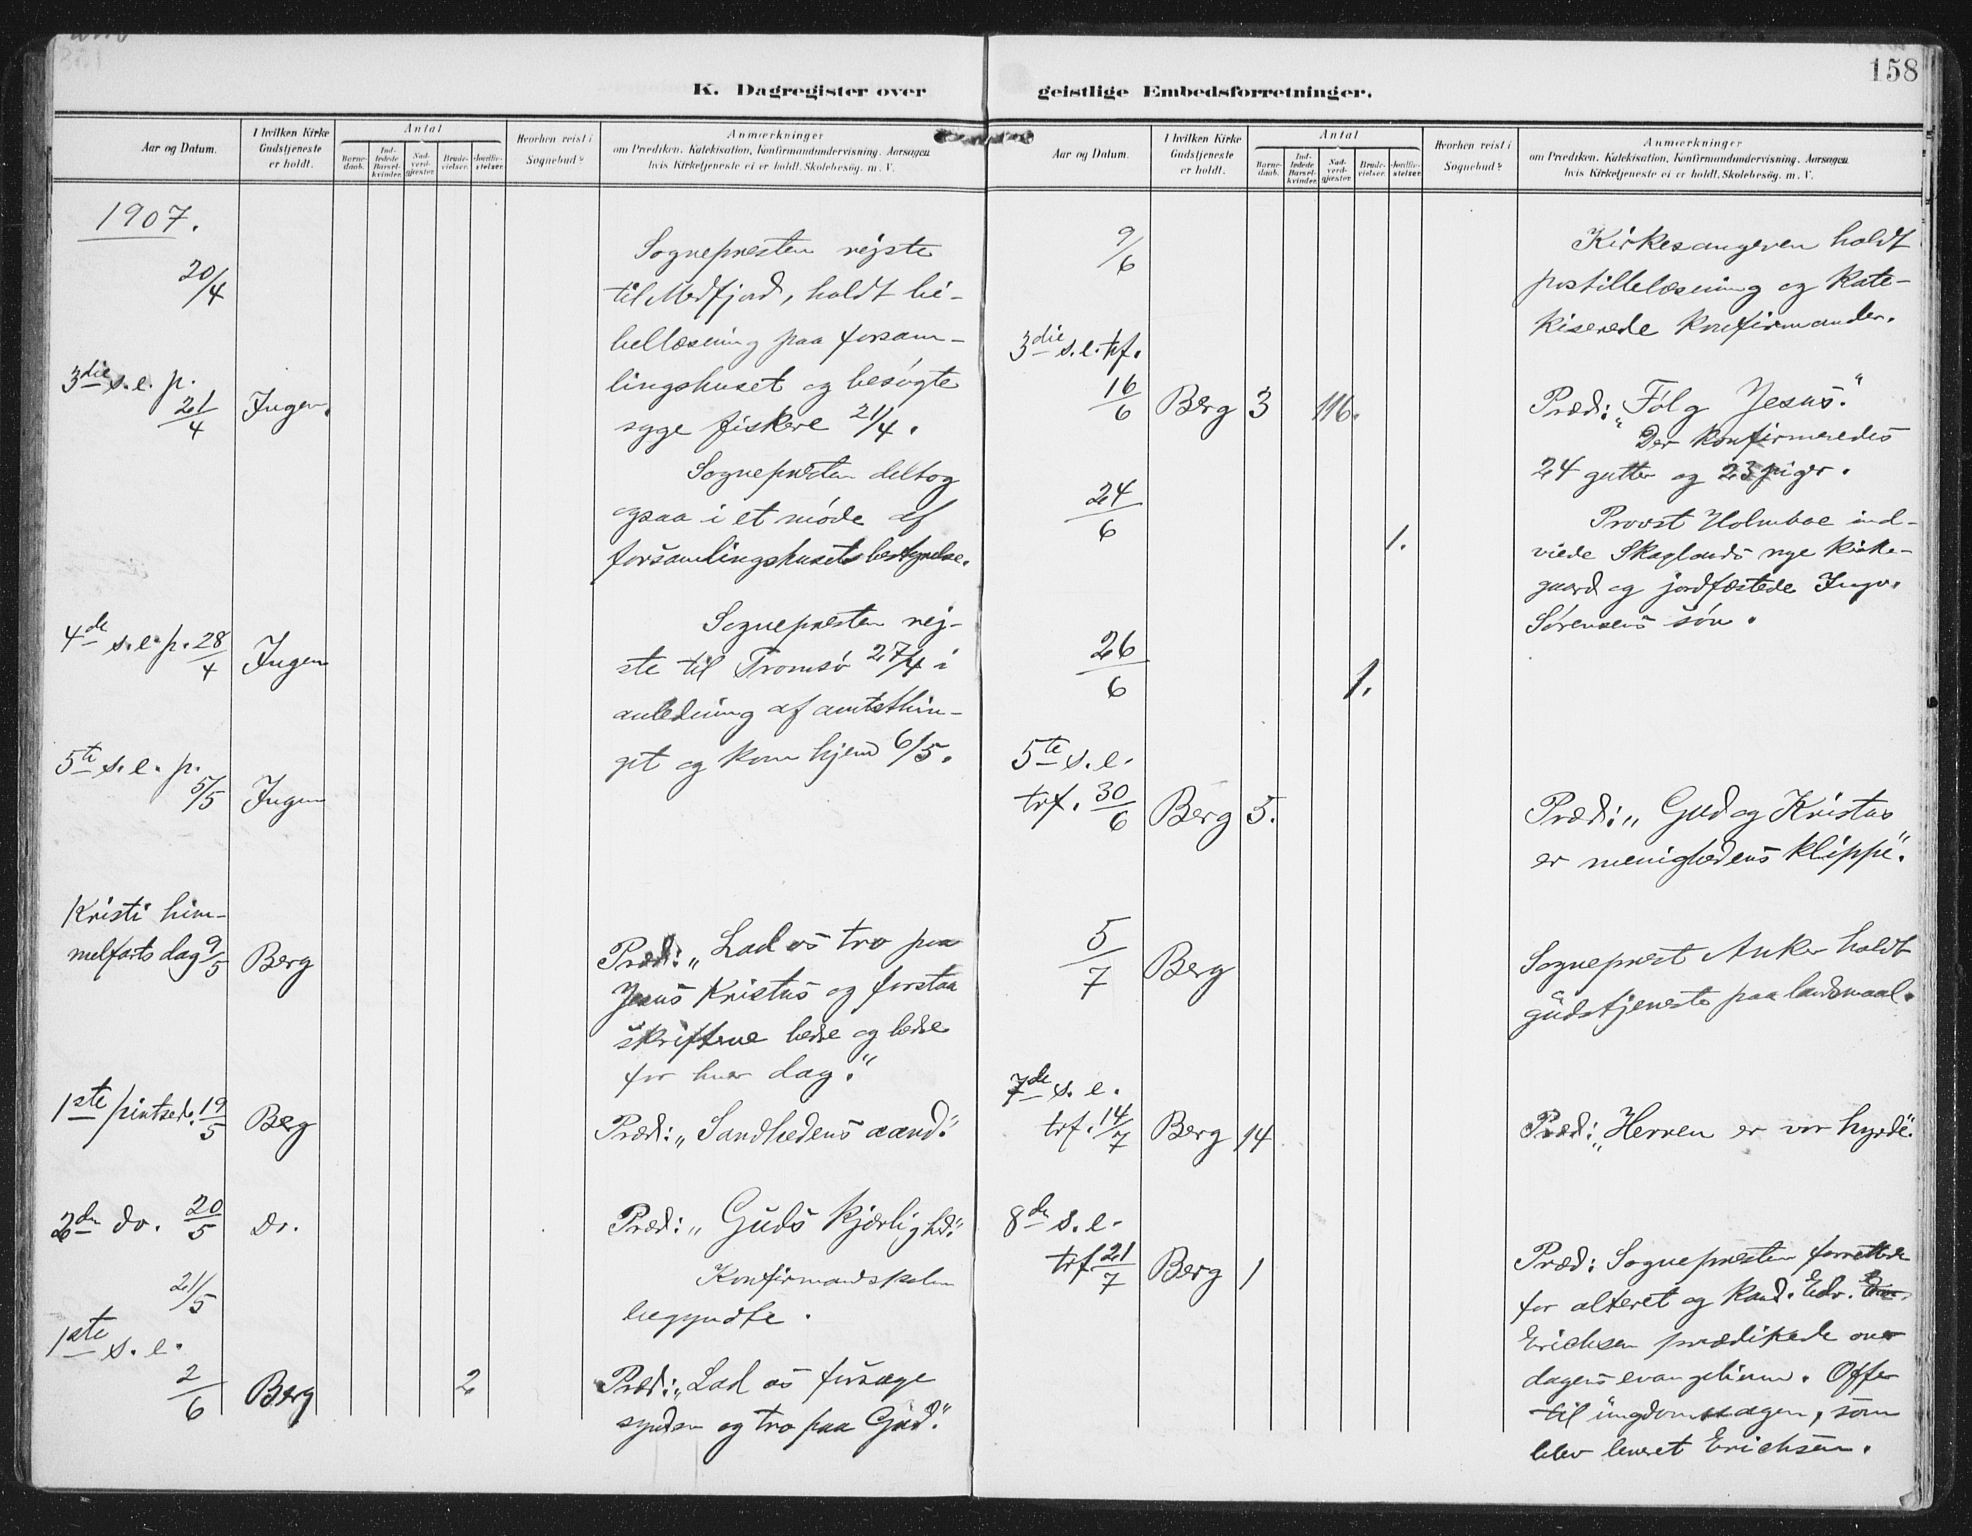 158
K. Dagregister over geistlige Embedsforretninger.
Aar og Datum.
I hvilken Kirke
Gudstjeneste
er holdt.
Antal
Barne-
daab.
Ind-
ledede
Barsel-
kvinder.
Nad-
verd-
gjæster.
Brude-
vielser.
Jordfæ-
stelser.
Hvorhen reist i
Sognebud?
Anmærkninger
om Prædiken, Katekisation, Konfirmandundervisning, Aarsagen
hvis Kirketjeneste ei er holdt, Skolebesøg, m. V.
1907.
20/4
Sognepresten rejste
til Medfjord, holdt bi-
bellæsning paa forsam-
lingshuset og besøgte
syge fiskere 21/4.
3die s. e. p.
21/4 Ingen.
Sognepresten deltog
ogsaa i et møde af
forsamlingshusets bestyrelse.
4de s. e. p. 28/4 Ingen
Sognepresten rej-
ste til Tromsø 27/4 i
anledning af amtsthin-
get og kom hjem 6/5.
5te s. e. p.
5/5 Ingen
Kristi him-
melfarts dag 9/5 Berg
Præd: „Lad os tro paa
Jesus Kristus og forstaa
skrifterne bedre og bedre
for hver dag."
1ste pintsed. 19/5 Berg Præd: „Sandhedens aand."
2den do. 20/5 Do. Præd: „Guds kjærlighed."
21/5 Konfirmandskolen
begyndte.
1ste s. e.
2/6 Berg 2 Præd: „Lad os forsage
synden og tro paa Gud."
Aar og Datum.
I hvilken Kirke
Gudstjeneste
er holdt.
Antal
Barne-
daab.
Ind-
ledede
Barsel-
kvinder.
Nad-
verd-
gjæster.
Brude-
vielser.
Jordfæ-
stelser.
Hvorhen reist i
Sognebud?
Anmærkninger
om Prædiken, Katekisation, Konfirmandundervisning, Aarsagen
hvis Kirketjeneste ei er holdt, Skolebesøg, m. V.
9/6
Kirkesangeren holdt
postillelæsning og kate-
kiserede konfirmander.
3die s. e. trf.
16/6 Berg 3 116. Præd: „Følg Jesus."
Der konfirmeredes
24 gutter og 23 piger.
24/6 1.
Provst Holmboe ind-
viede Skaglands nye kirke-
gaard og jordfæstede Ingv.
Sørensens søn.
26/6 1.
5te s. e.
trf. 30/6 Berg 5. Præd: „Gud og Kristus
er menighedens klippe".
5/7 Berg Sogneprest Anker holdt
gudstjeneste paa landsmaal.
7de s. e.
trf. 14/7 Berg 14 Præd: „Herren er vor hyrde".
8de s. e.
trf 21/7 Berg 1 Præd: Sognepresten forrettede
for alteret og kand. Edv.
Erichsen prædikede over
dagens evangelium. Offer
til ungdomssagen, som
blev leveret Erichsen.